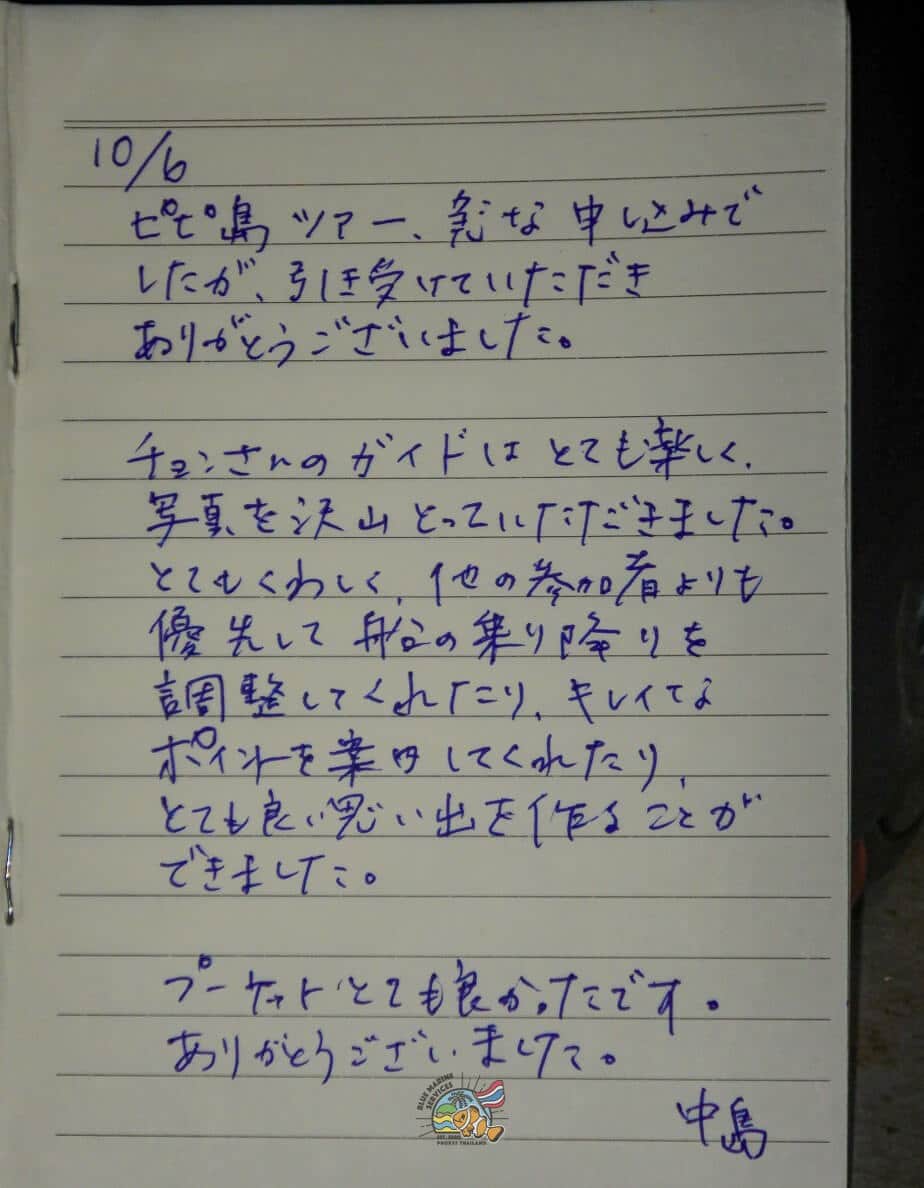 10/6
ピピ島ツアー、急な申し込みで
したが、引き受けていただき
ありがとうございました。
チョンさんのガイドはとても楽しく、
写真を沢山とっていただきました。
とてもくわしく、他の参加者よりも
優先して船の乗り降りを
調整してくれたり、キレイな
ポイントを案内してくれたり、
とても良い思い出を作ることが
できました。
プーケットとても良かったです。
ありがとうございました。
中島
BLUE MARINE
SERVICES
EST. 
PHUKET THAILAND